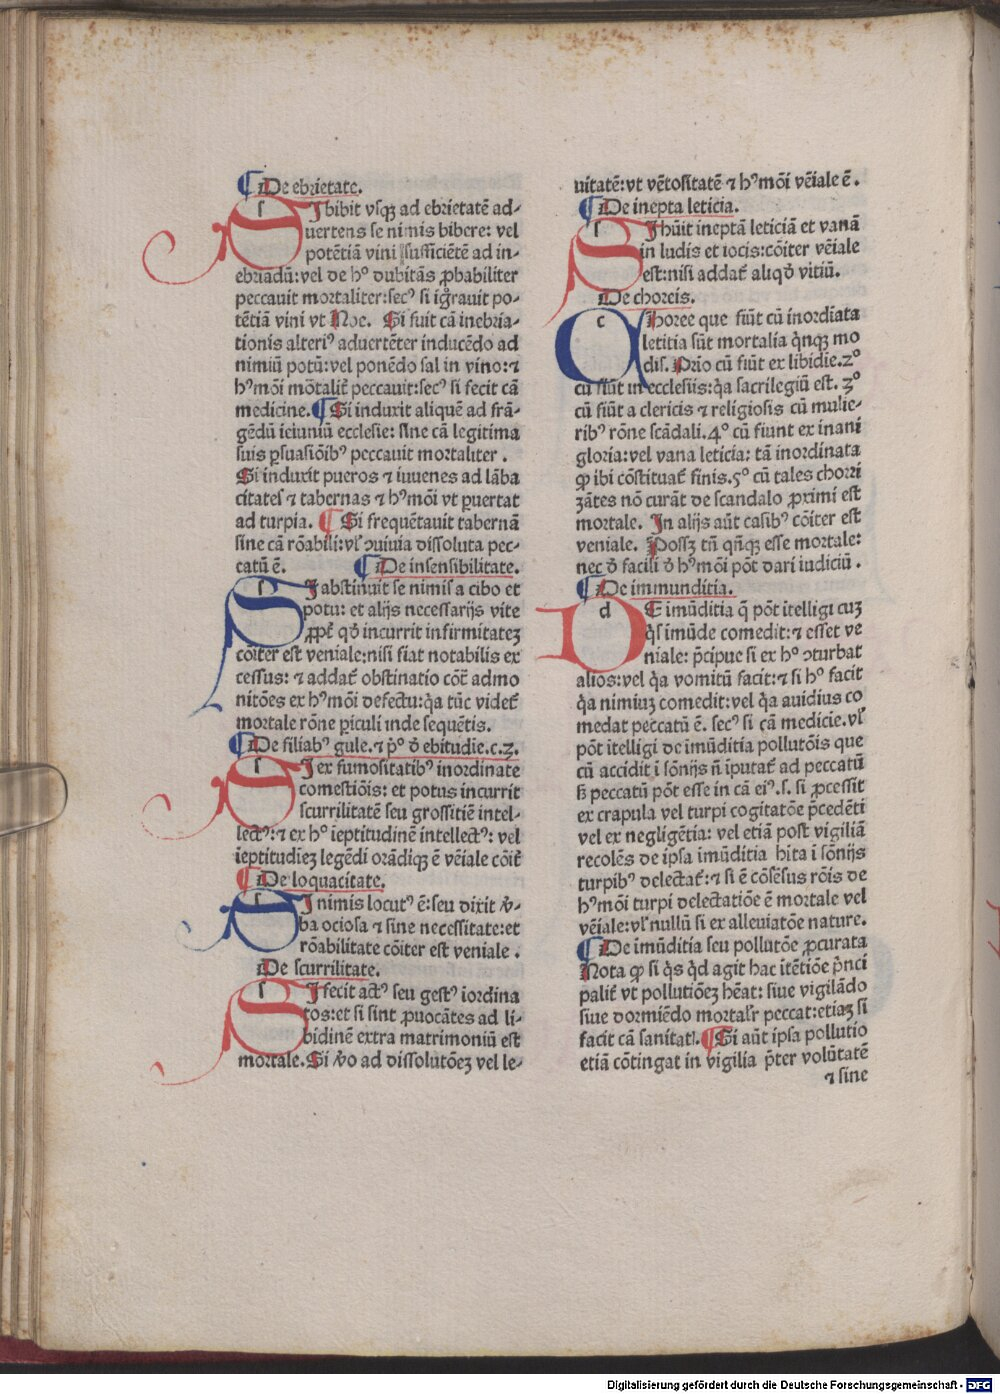 ¶ De ebrietate.
SI bibit vsqꝫ ad ebrietatē ad-
uertens se nimis bibere: vel
potētiā vini sufficiētē ad in-
ebriādū: vel de hᵒ dubitās ꝓbabiliter
peccauit mortaliter: secꝰ si igrauit po-
tētiā vini vt Noe. Si fuit cā inebria-
tionis alteriꝰ aduertēter inducēdo ad
nimiū potū: vel ponēdo sal in vino: ⁊
hꝰmōi mōtalit̄ peccauit: secꝰ si fecit cā
medicine. ¶ Si induxit aliquē ad frā-
gēdū ieiuniū ecclesie: sine cā legitima
suis ꝑsuasiōibꝰ peccauit mortaliter .
Si induxit pueros ⁊ iuuenes ad lāba
citates ⁊ tabernas ⁊ hꝰmōi vt ꝑuertat
ad turpia. ¶ Si frequētauit tabernā
sine cā rōabili: vl̓ ꝯuiuia dissoluta pec-
catū ē. ¶ De insensibilitate.
SI abstinuit se nimis a cibo et
potu: et alijs necessarijs vite
ꝓpt̄ qđ incurrit infirmitateꝫ
cōiter est veniale: nisi fiat notabilis ex
cessus: ⁊ addat̄ obstinatio cōt̄ admo
nitōes ex hꝰmōi defectu: q̄a tūc videt̄
mortale rōne ꝑiculi inde sequētis.
¶ De filiabꝰ gule. ⁊ p̄ᵒ đ ebitudie. c. 2.
SI ex fumositatibꝰ inordinate
comestiōis: et potus incurrit
scurrilitatē seu grossitiē intel-
lectꝰ: ⁊ ex hᵒ ieptitudinē intellectꝰ: vel
ieptitudieꝫ legēdi orādiqꝫ ē vēiale cōit̄
¶ De loquacitate.
SI nimis locutꝰ ē: seu dixit v̓-
ba ociosa ⁊ sine necessitate: et
rōabilitate cōiter est veniale .
De scurrilitate.
SI fecit actꝰ seu gestꝰ iordina
tos: et si sint ꝓuocātes ad li-
bidinē extra matrimoniū est
mortale. Si v̓o ad dissolutōeꝫ vel le-
uitatē: vt vētositatē ⁊ hꝰmōi vēiale ē .
¶ De inepta leticia.
SI hūit ineptā leticiā et vanā
in ludis et iocis: cōiter vēiale
est: nisi addat̄ aliqđ vitiū.
De choreis.
CHoree que fiūt cū inordiata
letitia sūt mortalia q̄nqꝫ mo
dis. Prīo cū fiūt ex libidie. 2ᵒ
cū fiūt in ecclesiis: q̄a sacrilegiū est. 3ᵒ
cū fiūt a clericis ⁊ religiosis cū mulie-
ribꝰ rōne scādali. 4ᵒ cū fiunt ex inani
gloria: vel vana leticia: tā inordinata
ꝙ ibi cōstituat̄ finis. 5ᵒ cū tales chorri
zātes nō curāt de scandalo ꝓximi est
mortale. In alijs aūt casibꝰ cōiter est
veniale. Possꝫ tn̄ qn̄qꝫ esse mortale:
nec đ facili đ hꝰmōi pōt dari iudiciū .
¶ De immunditia.
DE imūditia q̄ pōt itelligi cuꝫ
q̄s imūde comedit: ⁊ esset ve
niale: p̄cipue si ex hᵒ ꝯturbat
alios: vel q̄a vomitū facit: ⁊ si hᵒ facit
q̄a nimiuꝫ comedit: vel q̄a auidius co
medat peccatū ē. secꝰ si cā medicie. vl̓
pōt itelligi de imūditia pollutōis que
cū accidit i sōnijs n̄ iputat̄ ad peccatū
ꝭ peccatū pōt esse in cā eiꝰ. s. si ꝓcessit
ex crapula vel turpi cogitatōe p̄cedēti
vel ex negligētia: vel etiā post vigiliā
recolēs de ipsa imūditia hita i sōnijs
turpibꝰ delectat̄: ⁊ si ē cōsēsus rōis de
hꝰmōi turpi delectatiōe ē mortale vel
vēiale: vl̓ nullū si ex alleuiatōe nature.
¶ De imūditia seu pollutōe ꝓcurata
Nota ꝙ si q̄s q̄d agit hac itētiōe p̄nci
palit̄ vt pollutiōeꝫ hēat: siue vigilādo
siue dormiēdo mortalr̄ peccat: etiaꝫ si
facit cā sanitatꝭ. ¶ Si aūt ipsa pollutio
etiā cōtingat in vigilia p̄ter volūtatē
⁊ sine
Digitalisierung gefördert durch die Deutsche Forschungsgemeinschaft - DFG